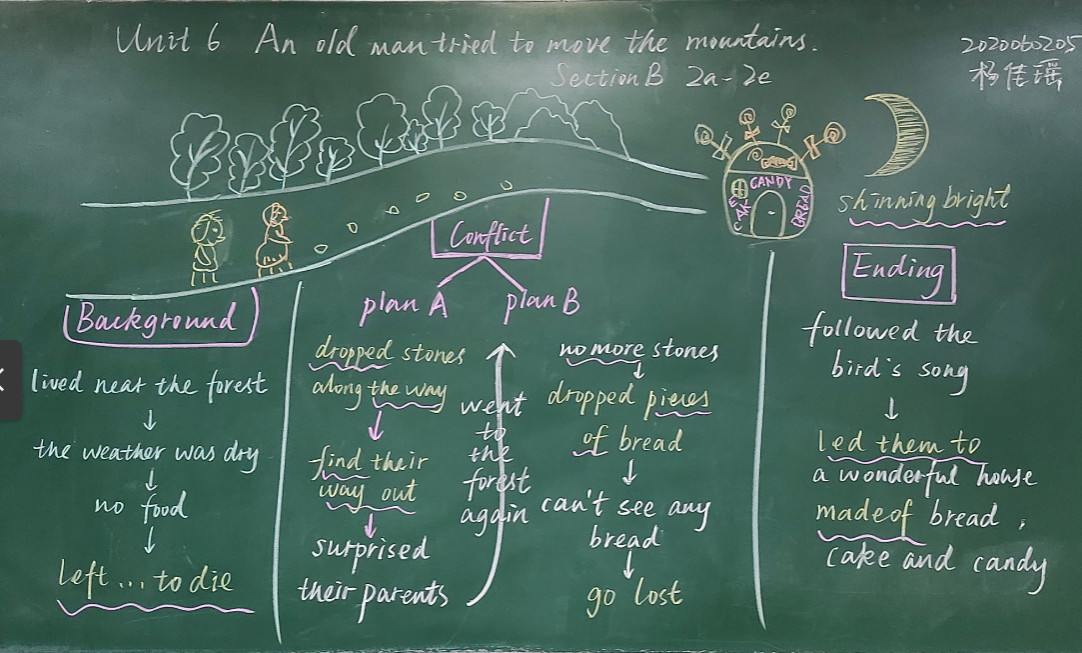 Unit 6 An old man tried to move the mountains.
Section B 2a-2e
2020060205
杨佳瑶
CANDY
CAKE
BREAD
shinning bright
Background
lived near the forest
↓
the weather was dry
↓
no food
↓
Left... to die
Conflict
plan A
plan B
dropped stones
along the way
↓
find their
way out
↓
surprised
their parents
went
to
the
forest
again
no more stones
↓
dropped pieces
of bread
↓
can't see any
bread
↓
go lost
Ending
followed the
bird's song
↓
led them to
a wonderful house
made of bread,
cake and candy